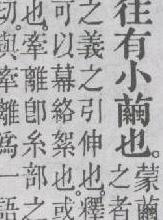 往有小繭也。
蒙繭
之者
之義之引伸也。釋
可以幕絡絮也。或
也。牽離卽糸部之
切。與牽離爲一語